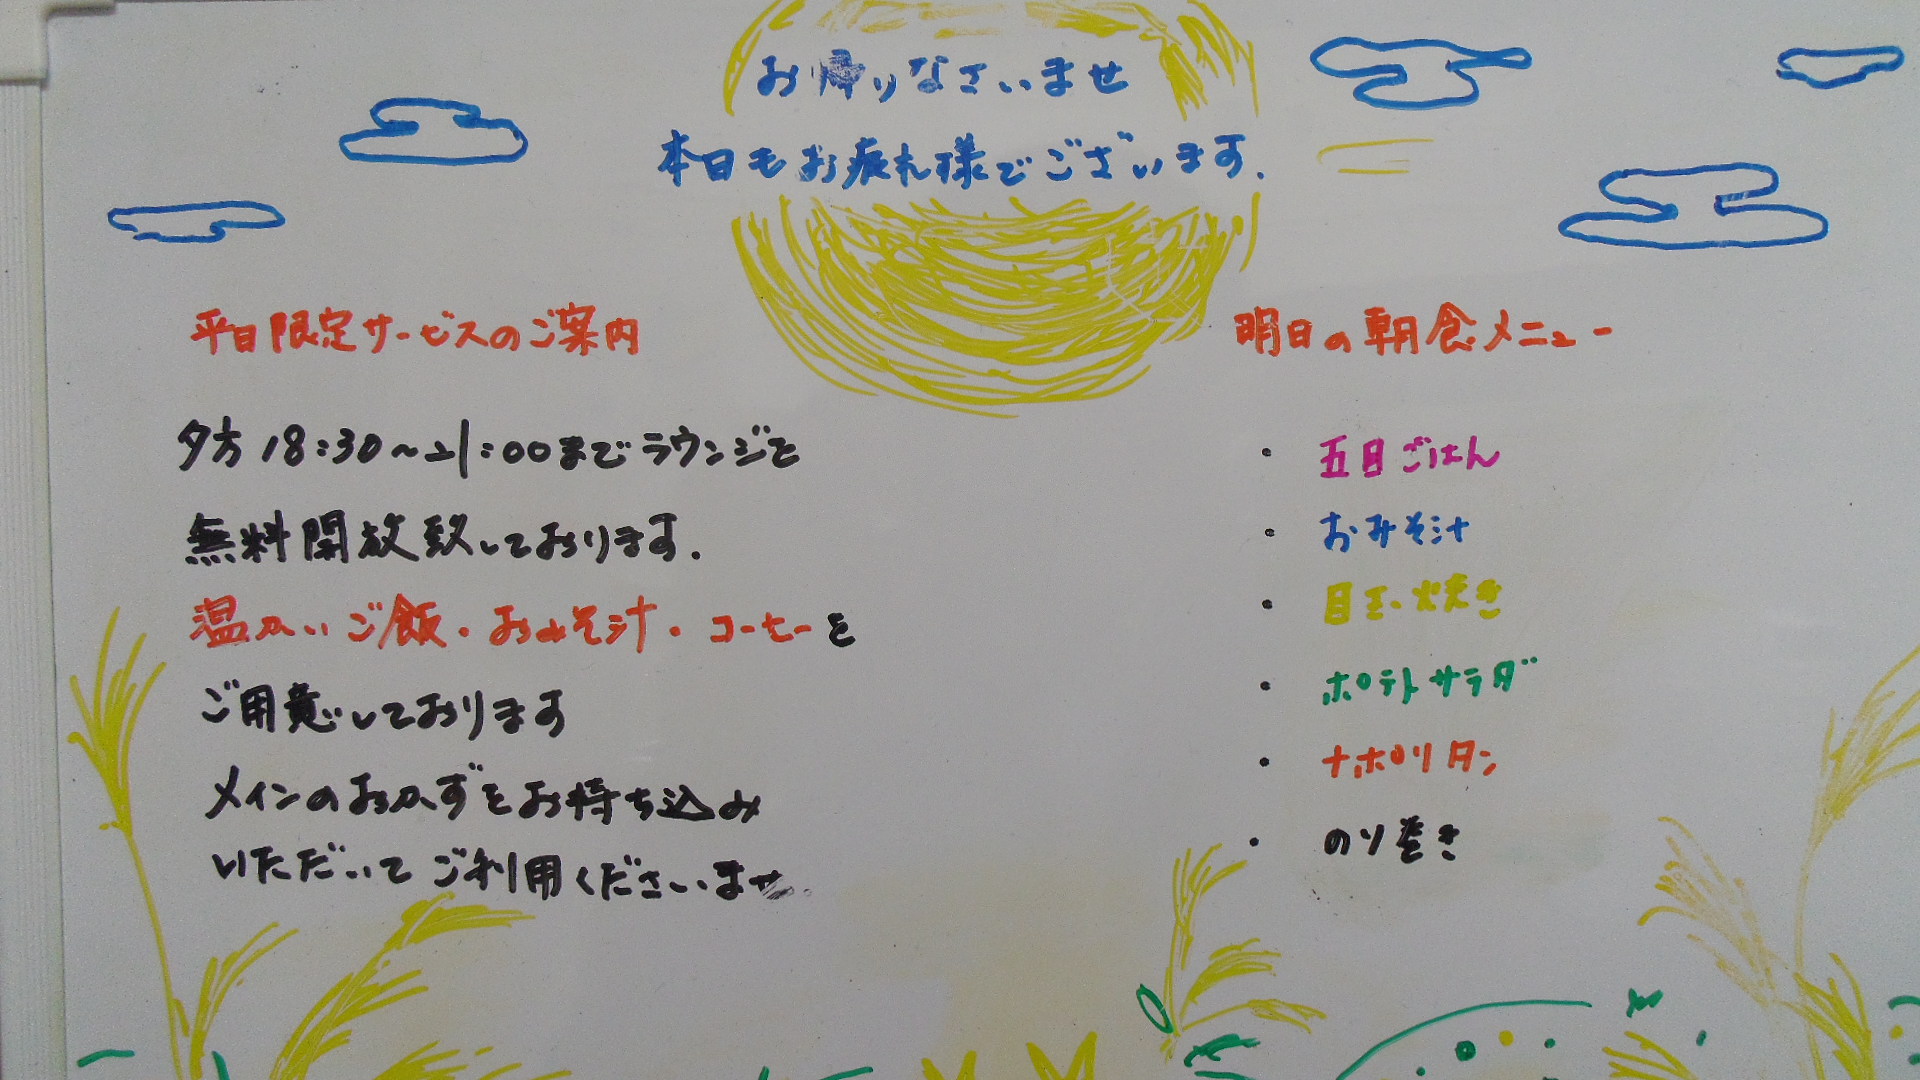 お帰りなさいませ
本日もお疲れ様でございます.
平日限定サービスのご案内
夕方 18:30~21:00までラウンジを
無料開放致しております.
温かいご飯・おみそ汁・コーヒーを
ご用意しております
メインのおかずをお持ち込み
いただいてご利用くださいませ.
明日の朝食メニュー
・ 五目ごはん
・ おみそ汁
・ 目玉焼き
・ ポテトサラダ
・ ナポリタン
・ のり巻き